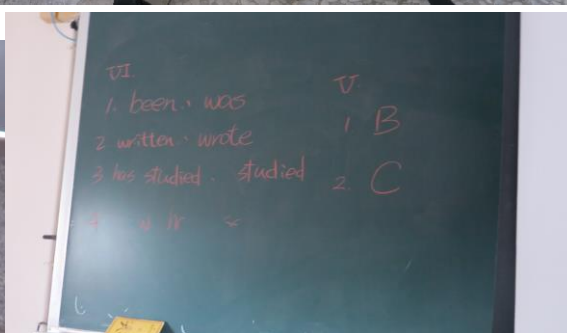 VI.
1. been, was
2 written, wrote
3 has studied. studied
V.
1 B
2. C